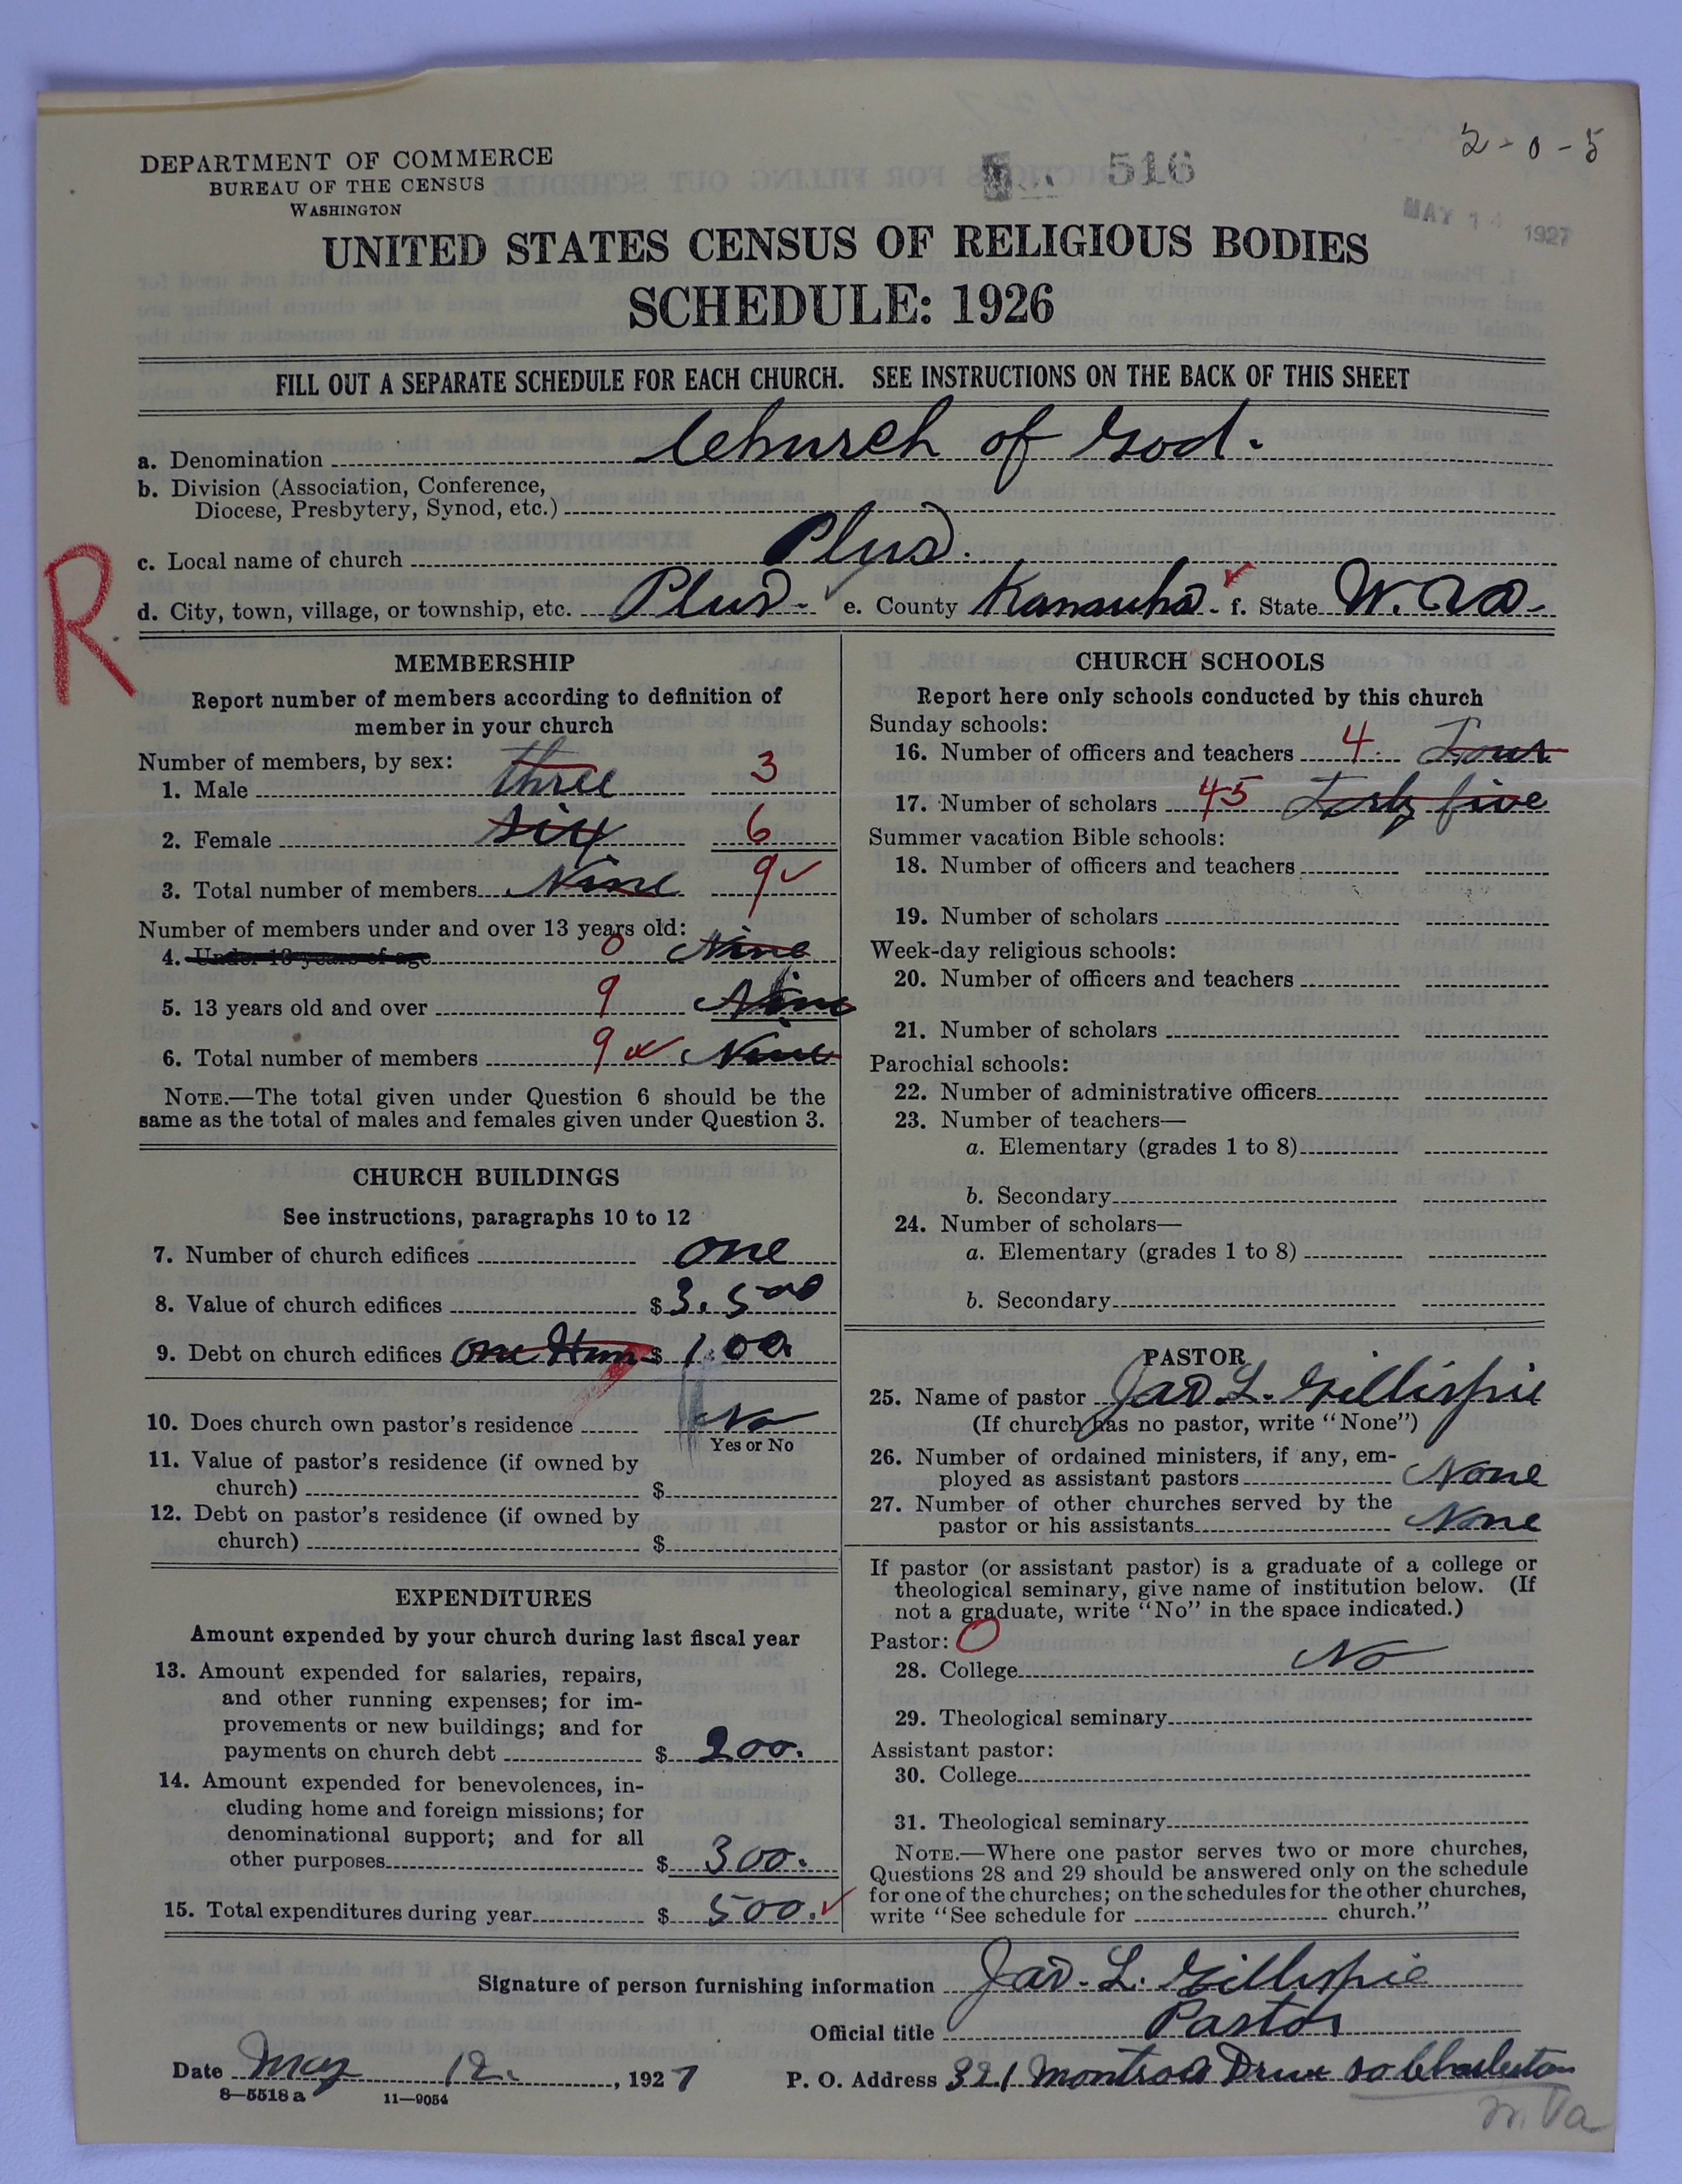 2-0-5
DEPARTMENT OF COMMERCE
BUREAU OF THE CENSUS
WASHINGTON
516
MAY 14 1927
UNITED STATES CENSUS OF RELIGIOUS BODIES
SCHEDULE: 1926
FILL OUT A SEPARATE SCHEDULE FOR EACH CHURCH. SEE INSTRUCTIONS ON THE BACK OF THIS SHEET
a. Denomination Church of God.
b. Division (Association, Conference,
Diocese, Presbytery, Synod, etc.)
c. Local name of church Plus.
R
d. City, town, village, or township, etc. Plus. e. County Kanawha. f. State W. Va.
MEMBERSHIP
Report number of members according to definition of
member in your church
Number of members, by sex:
1. Male three 3
2. Female six 6
3. Total number of members Nine 9✓
Number of members under and over 13 years old:
4. Under 13 years of age 0 Nine
5. 13 years old and over 9 Nine
6. Total number of members 9 Nine
NOTE.—The total given under Question 6 should be the
same as the total of males and females given under Question 3.
CHURCH BUILDINGS
See instructions, paragraphs 10 to 12
7. Number of church edifices one
8. Value of church edifices $ 3.500
9. Debt on church edifices one Hun $ 1.00.
10. Does church own pastor's residence No
Yes or No
11. Value of pastor's residence (if owned by
church) $
12. Debt on pastor's residence (if owned by
church) $
EXPENDITURES
Amount expended by your church during last fiscal year
13. Amount expended for salaries, repairs,
and other running expenses; for im-
provements or new buildings; and for
payments on church debt $ 200.
14. Amount expended for benevolences, in-
cluding home and foreign missions; for
denominational support; and for all
other purposes $ 300.
15. Total expenditures during year $ 500. ✓
CHURCH SCHOOLS
Report here only schools conducted by this church
Sunday schools:
16. Number of officers and teachers 4. Four
17. Number of scholars 45 Forty five
Summer vacation Bible schools:
18. Number of officers and teachers
19. Number of scholars
Week-day religious schools:
20. Number of officers and teachers
21. Number of scholars
Parochial schools:
22. Number of administrative officers
23. Number of teachers—
a. Elementary (grades 1 to 8)
b. Secondary
24. Number of scholars—
a. Elementary (grades 1 to 8)
b. Secondary
PASTOR
25. Name of pastor Jas. L. Gillispie
(If church has no pastor, write "None")
26. Number of ordained ministers, if any, em-
ployed as assistant pastors None
27. Number of other churches served by the
pastor or his assistants None
If pastor (or assistant pastor) is a graduate of a college or
theological seminary, give name of institution below. (If
not a graduate, write "No" in the space indicated.)
Pastor: 0
28. College No
29. Theological seminary
Assistant pastor:
30. College
31. Theological seminary
NOTE.—Where one pastor serves two or more churches,
Questions 28 and 29 should be answered only on the schedule
for one of the churches; on the schedules for the other churches,
write "See schedule for church."
Signature of person furnishing information Jas. L. Gillispie
Official title Pastor
Date May 12. , 1927 P. O. Address 321 Montrose Drive So Charleston
W. Va
8—5518 a 11—9054